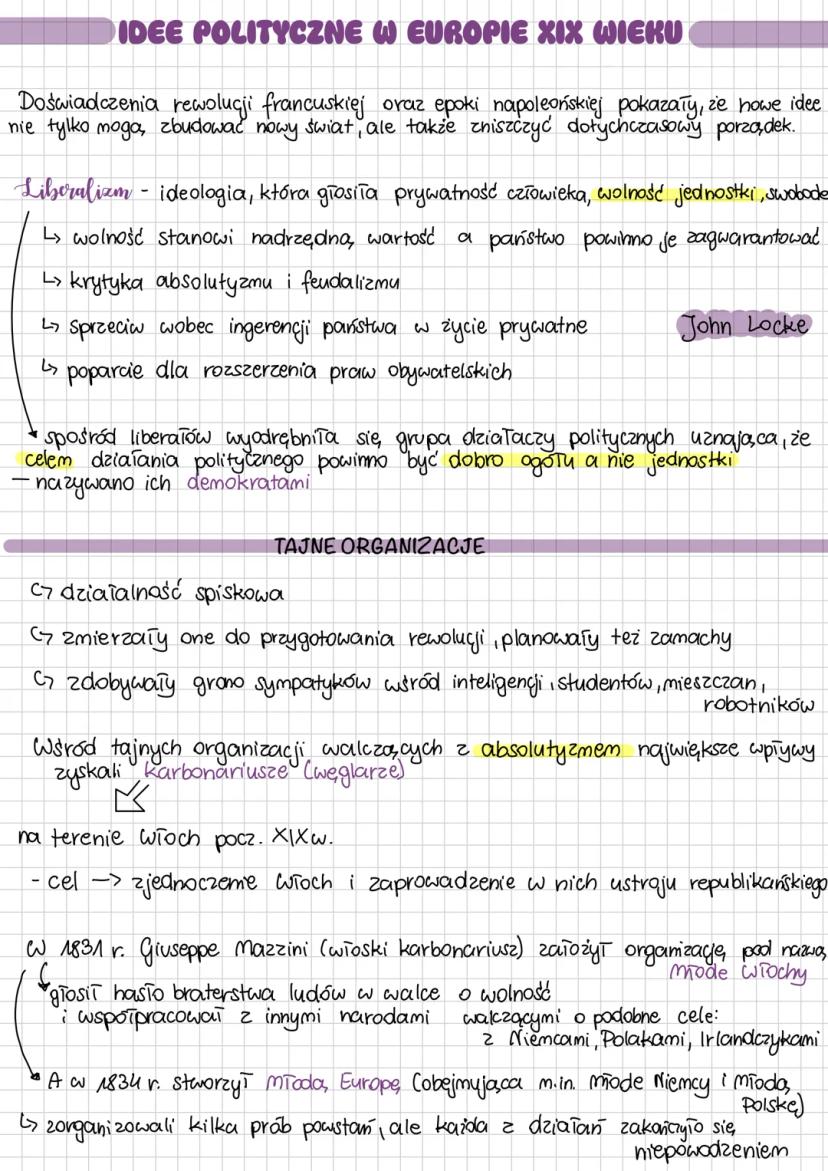 IDEE POLITYCZNE W EUROPIE XIX WIEKU
Doświadczenia rewolucji francuskiej oraz epoki napoleońskiej pokazały, że nowe idee
nie tylko mogą zbudować nowy świat, ale także zniszczyć dotychczasowy porządek.
Liberalizm - ideologia, która głosiła prywatność człowieka, wolność jednostki, swobodę
↳ wolność stanowi nadrzędną wartość a państwo powinno je zagwarantować
↳ krytyka absolutyzmu i feudalizmu
↳ sprzeciw wobec ingerencji państwa w życie prywatne John Locke
↳ poparcie dla rozszerzenia praw obywatelskich
spośród liberałów wyodrębniła się grupa działaczy politycznych uznająca, że
celem działania politycznego powinno być dobro ogółu a nie jednostki
- nazywano ich demokratami
TAJNE ORGANIZACJE
↪ działalność spiskowa
↪ zmierzały one do przygotowania rewolucji, planowały też zamachy
↪ zdobywały grono sympatyków wśród inteligencji, studentów, mieszczan,
robotników
Wśród tajnych organizacji walczących z absolutyzmem największe wpływy
zyskali karbonariusze (węglarze)
na terenie Włoch pocz. XIXw.
- cel -> zjednoczenie Włoch i zaprowadzenie w nich ustroju republikańskiego
W 1831 r. Giuseppe Mazzini (włoski karbonariusz) założył organizację pod nazwą
Młode Włochy
głosił hasło braterstwa ludów w walce o wolność
i współpracował z innymi narodami walczącymi o podobne cele:
z Niemcami, Polakami, Irlandczykami
A w 1834 r. stworzył Młodą Europę (obejmującą m.in. Młode Niemcy i Młodą
Polskę)
↳ zorganizowali kilka prób powstań, ale każda z działań zakończyło się
niepowodzeniem